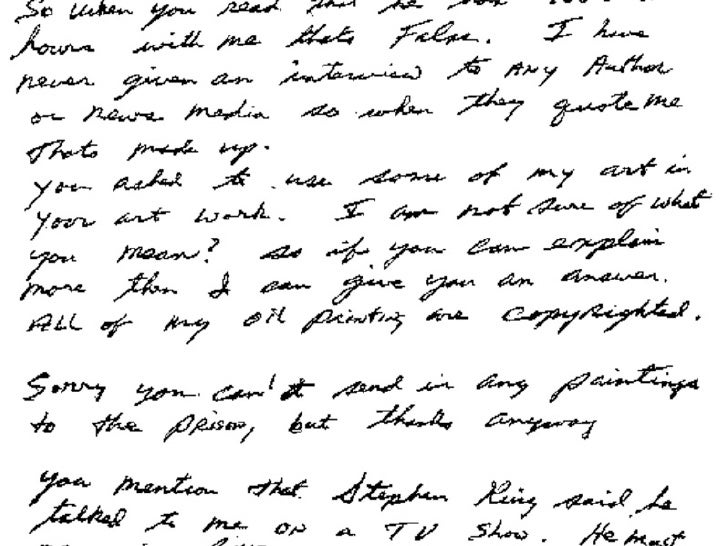 So when you read that he
hours with me thats False. I have
never given an interview to ANY Author
or news media so when they quote me
thats made up.
you asked to use some of my art in
your art work. I am not sure of what
you mean? so if you can explain
more then I can give you an answer.
All of my oil painting are copyrighted.
Sorry you can't send in any paintings
to the prison, but thanks anyway
you mention that Stephen King said he
talked to me on a TV show. He must